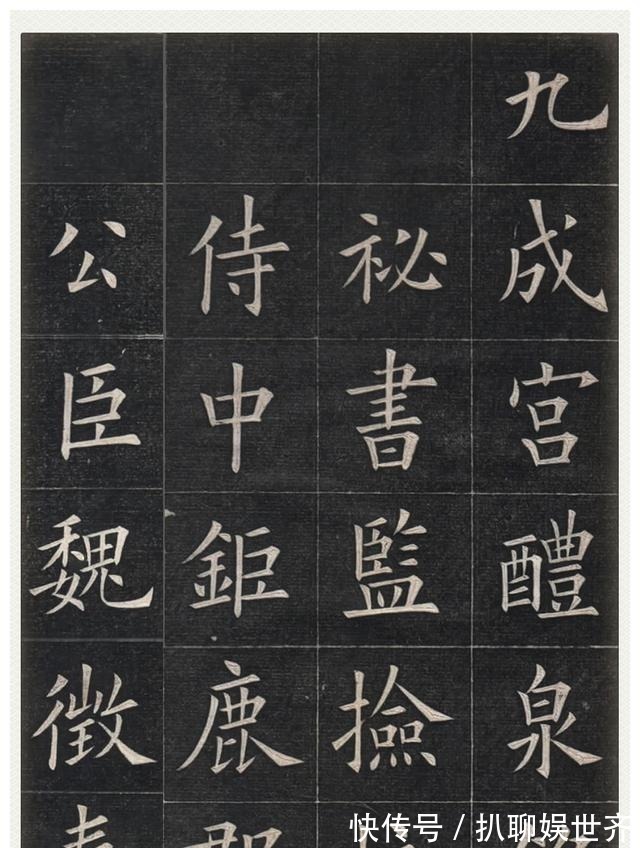 九成宮醴泉
祕書監撿
侍中鉅鹿郡
公臣魏徵
快传号 / 扒聊娱世齐